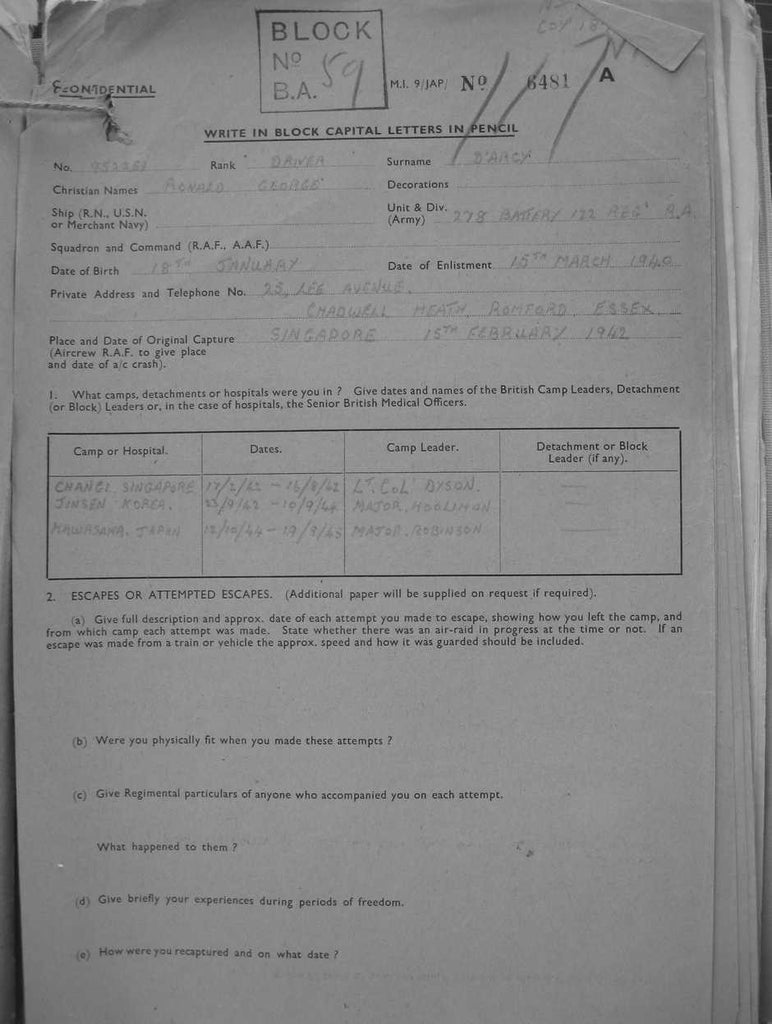 BLOCK
Nº
B.A. 59
CONFIDENTIAL
M.I. 9/JAP/ Nº 6481 A
WRITE IN BLOCK CAPITAL LETTERS IN PENCIL
No. Rank DRIVER Surname D'ARCY
Christian Names RONALD GEORGE Decorations
Ship (R.N., U.S.N. or Merchant Navy)
Unit & Div. (Army) 278 BATTERY 122 REG' R.A.
Squadron and Command (R.A.F., A.A.F.)
Date of Birth 18TH JANUARY Date of Enlistment 15TH MARCH 1940
Private Address and Telephone No. 25, LEE AVENUE.
CHADWELL HEATH, ROMFORD, ESSEX.
Place and Date of Original Capture SINGAPORE 15TH FEBRUARY 1942
(Aircrew R.A.F. to give place
and date of a/c crash).
1. What camps, detachments or hospitals were you in ? Give dates and names of the British Camp Leaders, Detachment
(or Block) Leaders or, in the case of hospitals, the Senior British Medical Officers.
Camp or Hospital. Dates. Camp Leader. Detachment or Block
Leader (if any).
CHANGI SINGAPORE 17/2/42 - 16/8/42 LT. COL' DYSON.
JINSEN KOREA. 23/9/42 - 10/9/44 MAJOR
KAWASANA. JAPAN 12/10/44 - 19/8/45 MAJOR. ROBINSON
2. ESCAPES OR ATTEMPTED ESCAPES. (Additional paper will be supplied on request if required).
(a) Give full description and approx. date of each attempt you made to escape, showing how you left the camp, and
from which camp each attempt was made. State whether there was an air-raid in progress at the time or not. If an
escape was made from a train or vehicle the approx. speed and how it was guarded should be included.
(b) Were you physically fit when you made these attempts ?
(c) Give Regimental particulars of anyone who accompanied you on each attempt.
What happened to them ?
(d) Give briefly your experiences during periods of freedom.
(e) How were you recaptured and on what date ?